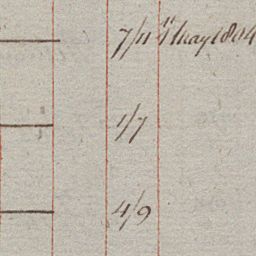 7/11 1 May 1804
1/7
4/9